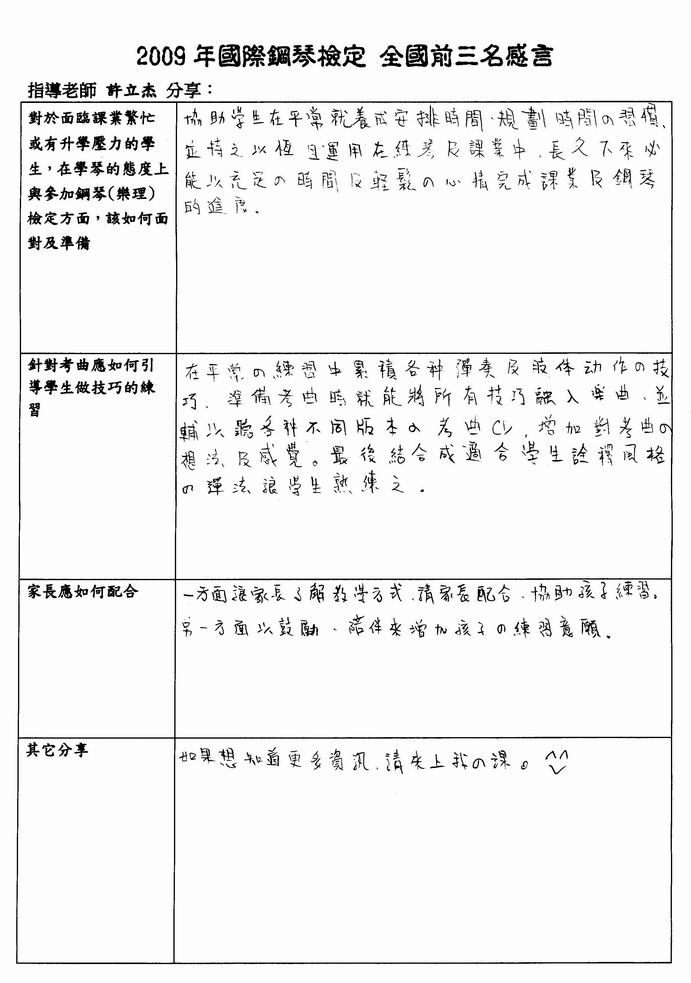 2009 年國際鋼琴檢定 全國前三名感言
指導老師 許立杰 分享：
對於面臨課業繁忙
或有升學壓力的學
生，在學琴的態度上
與參加鋼琴(樂理)
檢定方面，該如何面
對及準備
協助學生在平常就養成安排時間、規劃時間の習慣，
並持之以恆的運用在練琴及課業中，長久下來必
能以充足の時間及輕鬆の心情完成課業及鋼琴
的進度。
針對考曲應如何引
導學生做技巧的練
習
在平常の練習中累積各种彈奏及肢体动作の技
巧，準備考曲時就能將所有技巧融入樂曲，並
輔以聽各种不同版本の考曲CD，增加對考曲の
想法及感覺。最後結合成適合學生詮釋風格
の彈法讓學生熟練之。
家長應如何配合
一方面讓家長了解教學方式，請家長配合、協助孩子練習。
另一方面以鼓勵、陪伴來增加孩子の練習意願。
其它分享
如果想知道更多資訊，請來上我の課。^^